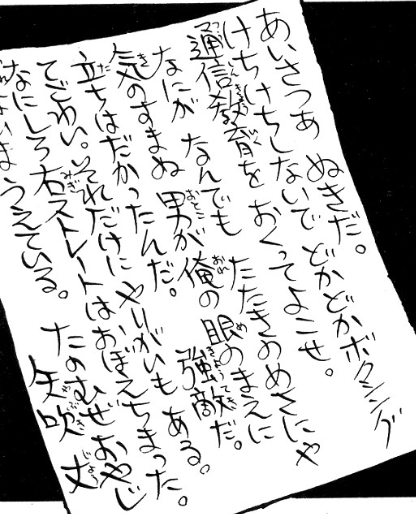 あいさつあ ぬきだ。
けちけちしないで どかどかボクシング
通信教育を おくってよこせ。
なにが なんでも たたきのめさにゃ
気のすまぬ 男が 俺の 眼のまえに
立ちはだかったんだ。 強敵だ。
てごわい。それだけに やりがいも ある。
なにしろ右ストレートはおぼえちまった。
いま うえている。 たのむぜ おやじ
矢吹 丈